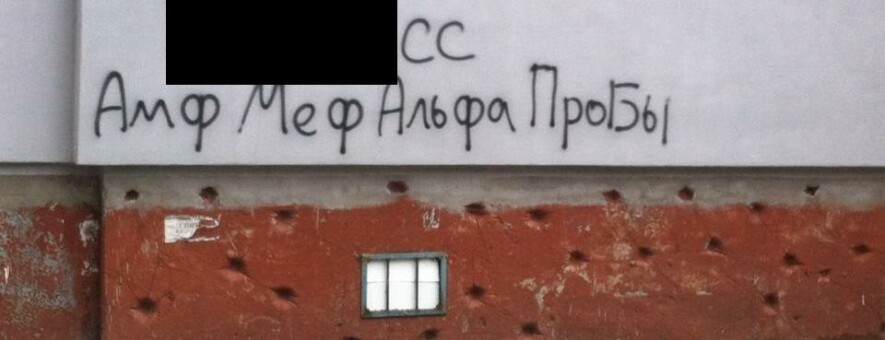 СС
Амф Меф Альфа ПроБы